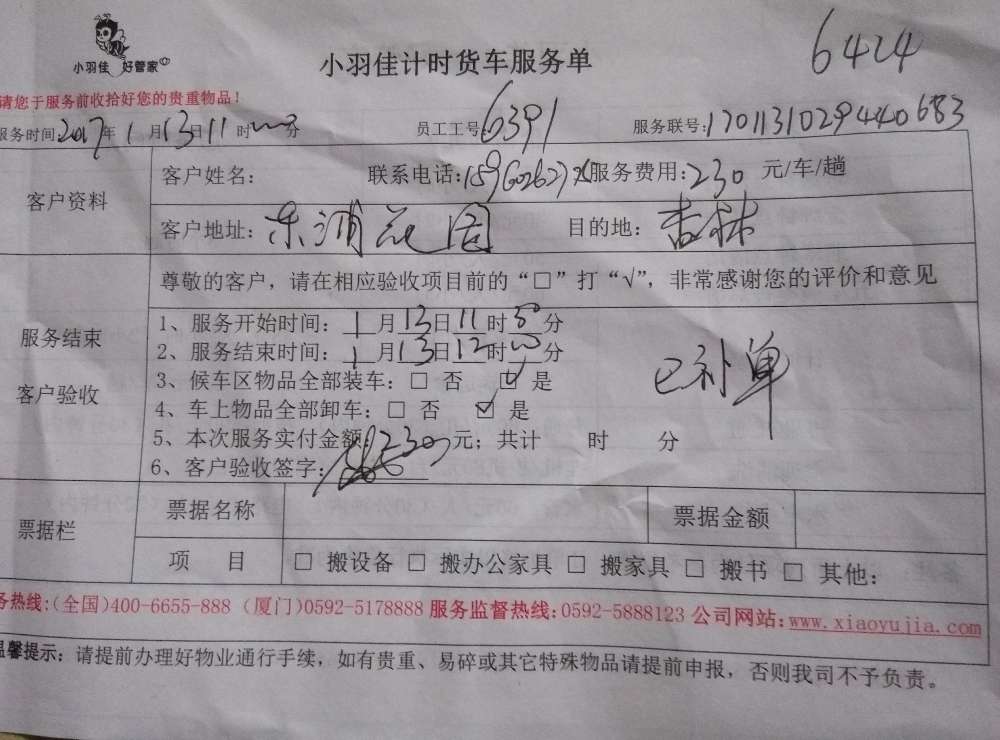 小羽佳 好管家
小羽佳计时货车服务单
6424
请您于服务前收拾好您的贵重物品！
服务时间:2017年1月13日11时 分 员工工号:6391 服务联号:1701131029440683
客户资料
客户姓名: 联系电话: 服务费用:230 元/车/趟
客户地址:东浦花园 目的地:杏林
服务结束
客户验收
尊敬的客户，请在相应验收项目前的“□”打“√”，非常感谢您的评价和意见
1、服务开始时间：1月13日11时 分
2、服务结束时间：1月13日12时 分
3、候车区物品全部装车：□ 否 ☑ 是
4、车上物品全部卸车：□ 否 ☑ 是
已补单
5、本次服务实付金额 230 元；共计 时 分
6、客户验收签字:
票据栏
票据名称 票据金额
项 目 □ 搬设备 □ 搬办公家具 □ 搬家具 □ 搬书 □ 其他：
务热线:(全国)400-6655-888 (厦门)0592-5178888 服务监督热线:0592-5888123 公司网站:www.xiaoyujia.com
温馨提示：请提前办理好物业通行手续，如有贵重、易碎或其它特殊物品请提前申报，否则我司不予负责。